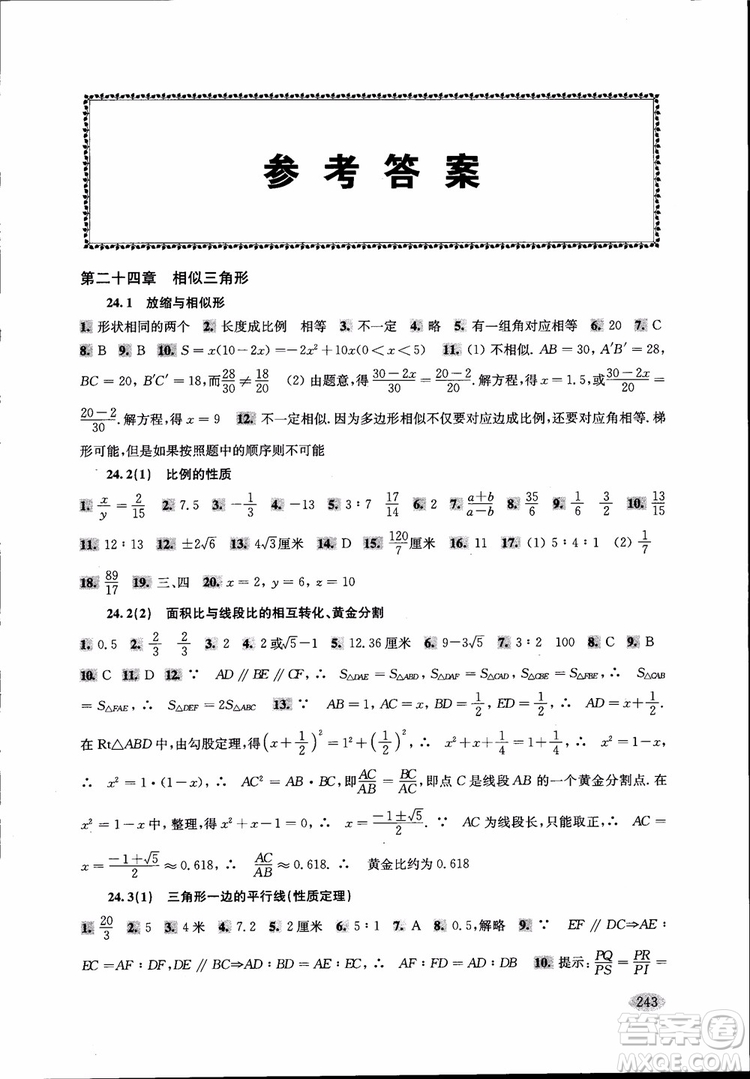 参考答案
第二十四章　相似三角形
24.1　放缩与相似形
1. 形状相同的两个　2. 长度成比例　相等　3. 不一定　4. 略　5. 有一组角对应相等　6. 20　7. C
8. B　9. B　10. S＝x(10－2x)＝－2x²＋10x(0＜x＜5)　11. (1) 不相似. AB＝30, A′B′＝28,
BC＝20, B′C′＝18, 28/30≠18/20　(2) 由题意,得(30－2x)/30＝(20－2)/20. 解方程,得 x＝1.5,或(30－2x)/20＝
(20－2)/30. 解方程,得 x＝9　12. 不一定相似. 因为多边形相似不仅要对应边成比例,还要对应角相等. 梯
形可能,但是如果按照题中的顺序则不可能
24.2(1)　比例的性质
1. x/y＝2/15　2. 7.5　3. －1/3　4. －13　5. 3∶7　17/14　7. (a＋b)/(a－b)　8. 35/6　9. 1/6　3/2　10. 13/15
11. 12∶13　12. ±2√6　13. 4√3厘米　14. D　15. 120/7厘米　16. 12厘米　17. (1) 5∶4∶1　(2)
18. 89/17　19. 三、四　20. x＝2, y＝6, z＝10
24.2(2)　面积比与线段比的相互转化、黄金分割
1. 0.5　2. 2/3　2/3　3. 2　4. 2或√5－1　5. 12.36厘米　6. 9－3√5　7. 3∶2　100　8. C　9. B
10. C　11. D　12. ∵　AD∥BE∥CF,∴　S△DAE＝S△ABD, S△DAF＝S△CAD, S△CBE＝S△FBE,∴　S△CAB
＝S△FAE,∴　S△DEF＝2S△ABC　13. ∵　AB＝1, AC＝x, BD＝1/2, ED＝1/2,∴　AD＝x＋1/2.
在 Rt△ABD 中,由勾股定理,得(x＋1/2)²＝1²＋(1/2)²,∴　x²＋x＋1/4＝1＋1/4,∴　x²＝1－x,
∴　x²＝1·(1－x),∴　AC²＝AB·BC,即AC/AB＝BC/AC,即点 C 是线段 AB 的一个黄金分割点. 在
x²＝1－x 中,整理,得 x²＋x－1＝0,∴　x＝(－1±√5)/2. ∵　AC 为线段长,只能取正,∴
x＝(－1＋√5)/2≈0.618,∴　AC/AB≈0.618,∴　黄金比约为 0.618
24.3(1)　三角形一边的平行线(性质定理)
1. 20/3　2. 5　3. 4米　4. 7.2　5. 2厘米　6. 5∶1　7. A　8. 0.5,解略　9. ∵　EF∥DC⇒AE∶
EC＝AF∶DF, DE∥BC⇒AD∶DB＝AE∶EC,∴　AF∶DF＝AD∶DB　10. 提示:PQ/PS＝PR/PI＝
243
答案圈
MXQE.COM